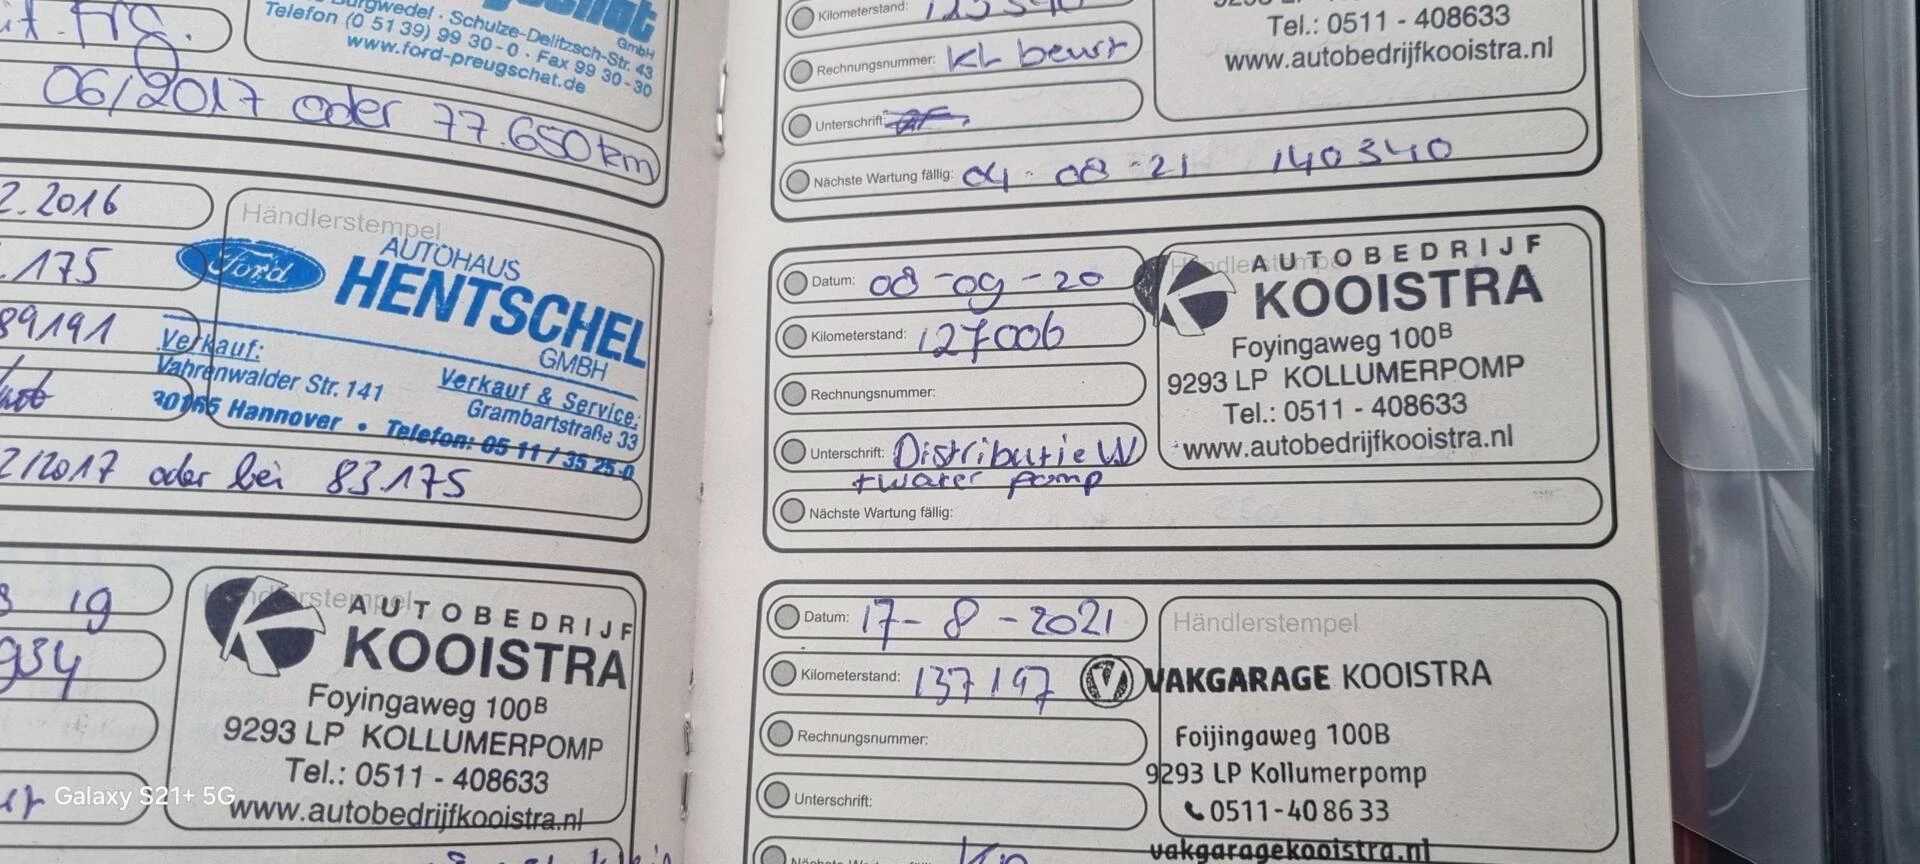 Burgwedel · Schulze-Delitzsch-Str. 43
GmbH
Telefon (0 51 39) 99 30-0 · Fax 99 30-30
www.ford-preugschat.de
06/2017 oder 77.650 km
2.2016
.175
89191
Händlerstempel
Ford
AUTOHAUS
HENTSCHEL
GMBH
Verkauf:
Vahrenwalder Str. 141
Verkauf & Service:
Grambartstraße 33
30165 Hannover • Telefon: 05 11 / 35 25-0
2/2017 oder bei 83.175
19
934
Händlerstempel
AUTOBEDRIJF
KOOISTRA
Foyingaweg 100B
9293 LP KOLLUMERPOMP
Tel.: 0511 - 408633
www.autobedrijfkooistra.nl
Galaxy S21+ 5G
Kilometerstand:
Rechnungsnummer: KL beurt
Unterschrift:
Nächste Wartung fällig: 04-08-21 140340
Tel.: 0511 - 408633
www.autobedrijfkooistra.nl
Datum: 08-09-20
Kilometerstand: 127006
Rechnungsnummer:
Unterschrift: Distributie W
+ water pomp
Nächste Wartung fällig:
AUTOBEDRIJF
KOOISTRA
Foyingaweg 100B
9293 LP KOLLUMERPOMP
Tel.: 0511 - 408633
www.autobedrijfkooistra.nl
Datum: 17-8-2021
Kilometerstand: 137197
Rechnungsnummer:
Unterschrift:
Händlerstempel
VAKGARAGE KOOISTRA
Foijingaweg 100B
9293 LP Kollumerpomp
0511-40 86 33
vakgaragekooistra.nl